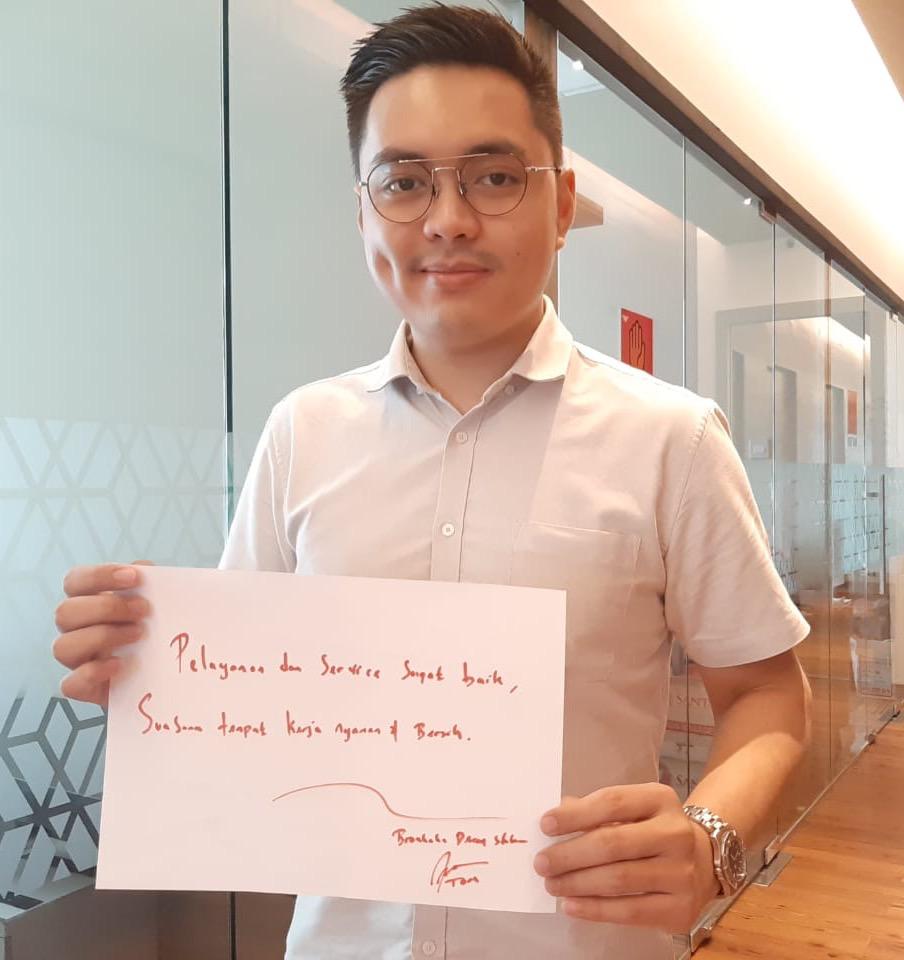 Pelayanan dan Service Sangat baik,
Suasana tempat Kerja nyaman & Bersih.
SANT
SAN